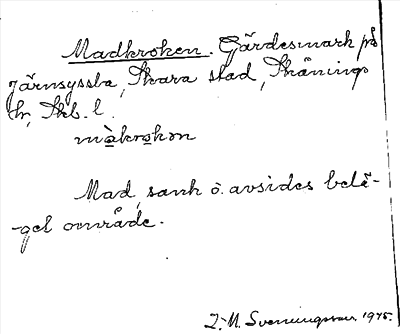 Madkroken. Gärdesmark på
Järnsyssla, Skara stad, Skånings
hr, Skb. l.
màkrokən
Mad, sank o. avsides belä-
-get område.
I.-M. Svenningsson. 1975.